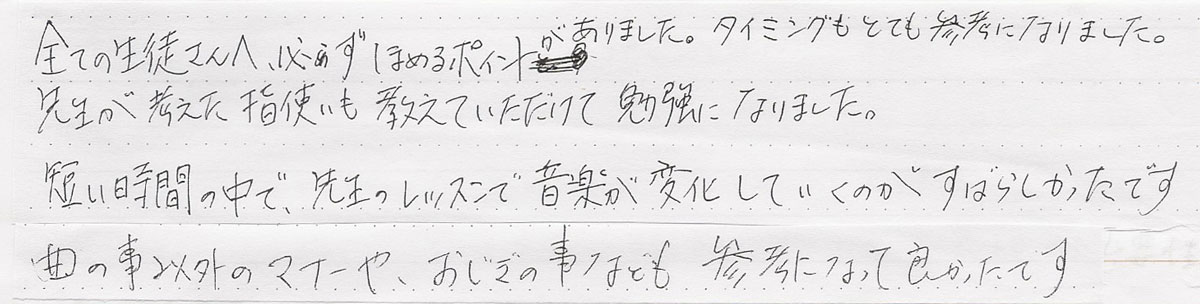 全ての生徒さんへ、必ずほめるポイントがありました。タイミングもとても参考になりました。
先生が考えた指使いも教えていただけて勉強になりました。
短い時間の中で、先生のレッスンで音楽が変化していくのがすばらしかったです
曲の事以外のマナーや、おじぎの事なども参考になって良かったです